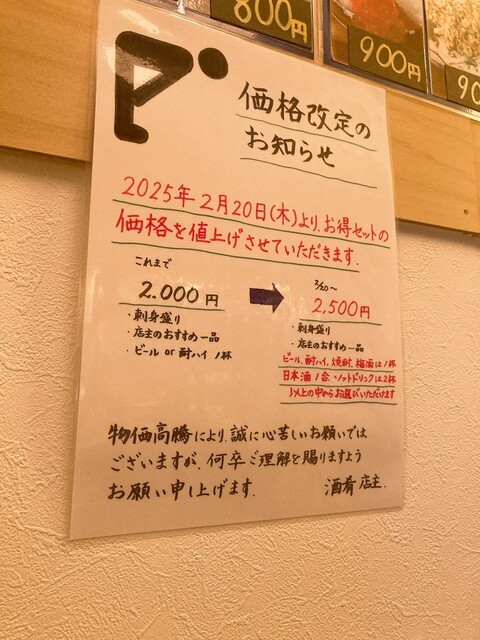 800円
900円
90
価格改定の
お知らせ
2025年2月20日(木)より、お得セットの
価格を値上げさせていただきます.
これまで
2.000円
・刺身盛り
・店主のおすすめ一品
・ビール or 酎ハイ 1杯
2/20〜
2,500円
・刺身盛り
・店主のおすすめ一品
ビール、酎ハイ、焼酎、梅酒は1杯
日本酒1合、ソフトドリンクは2杯
以上の中からお選びいただけます
物価高騰により、誠に心苦しいお願いでは
ございますが、何卒ご理解を賜りますよう
お願い申し上げます.
酒肴 店主.